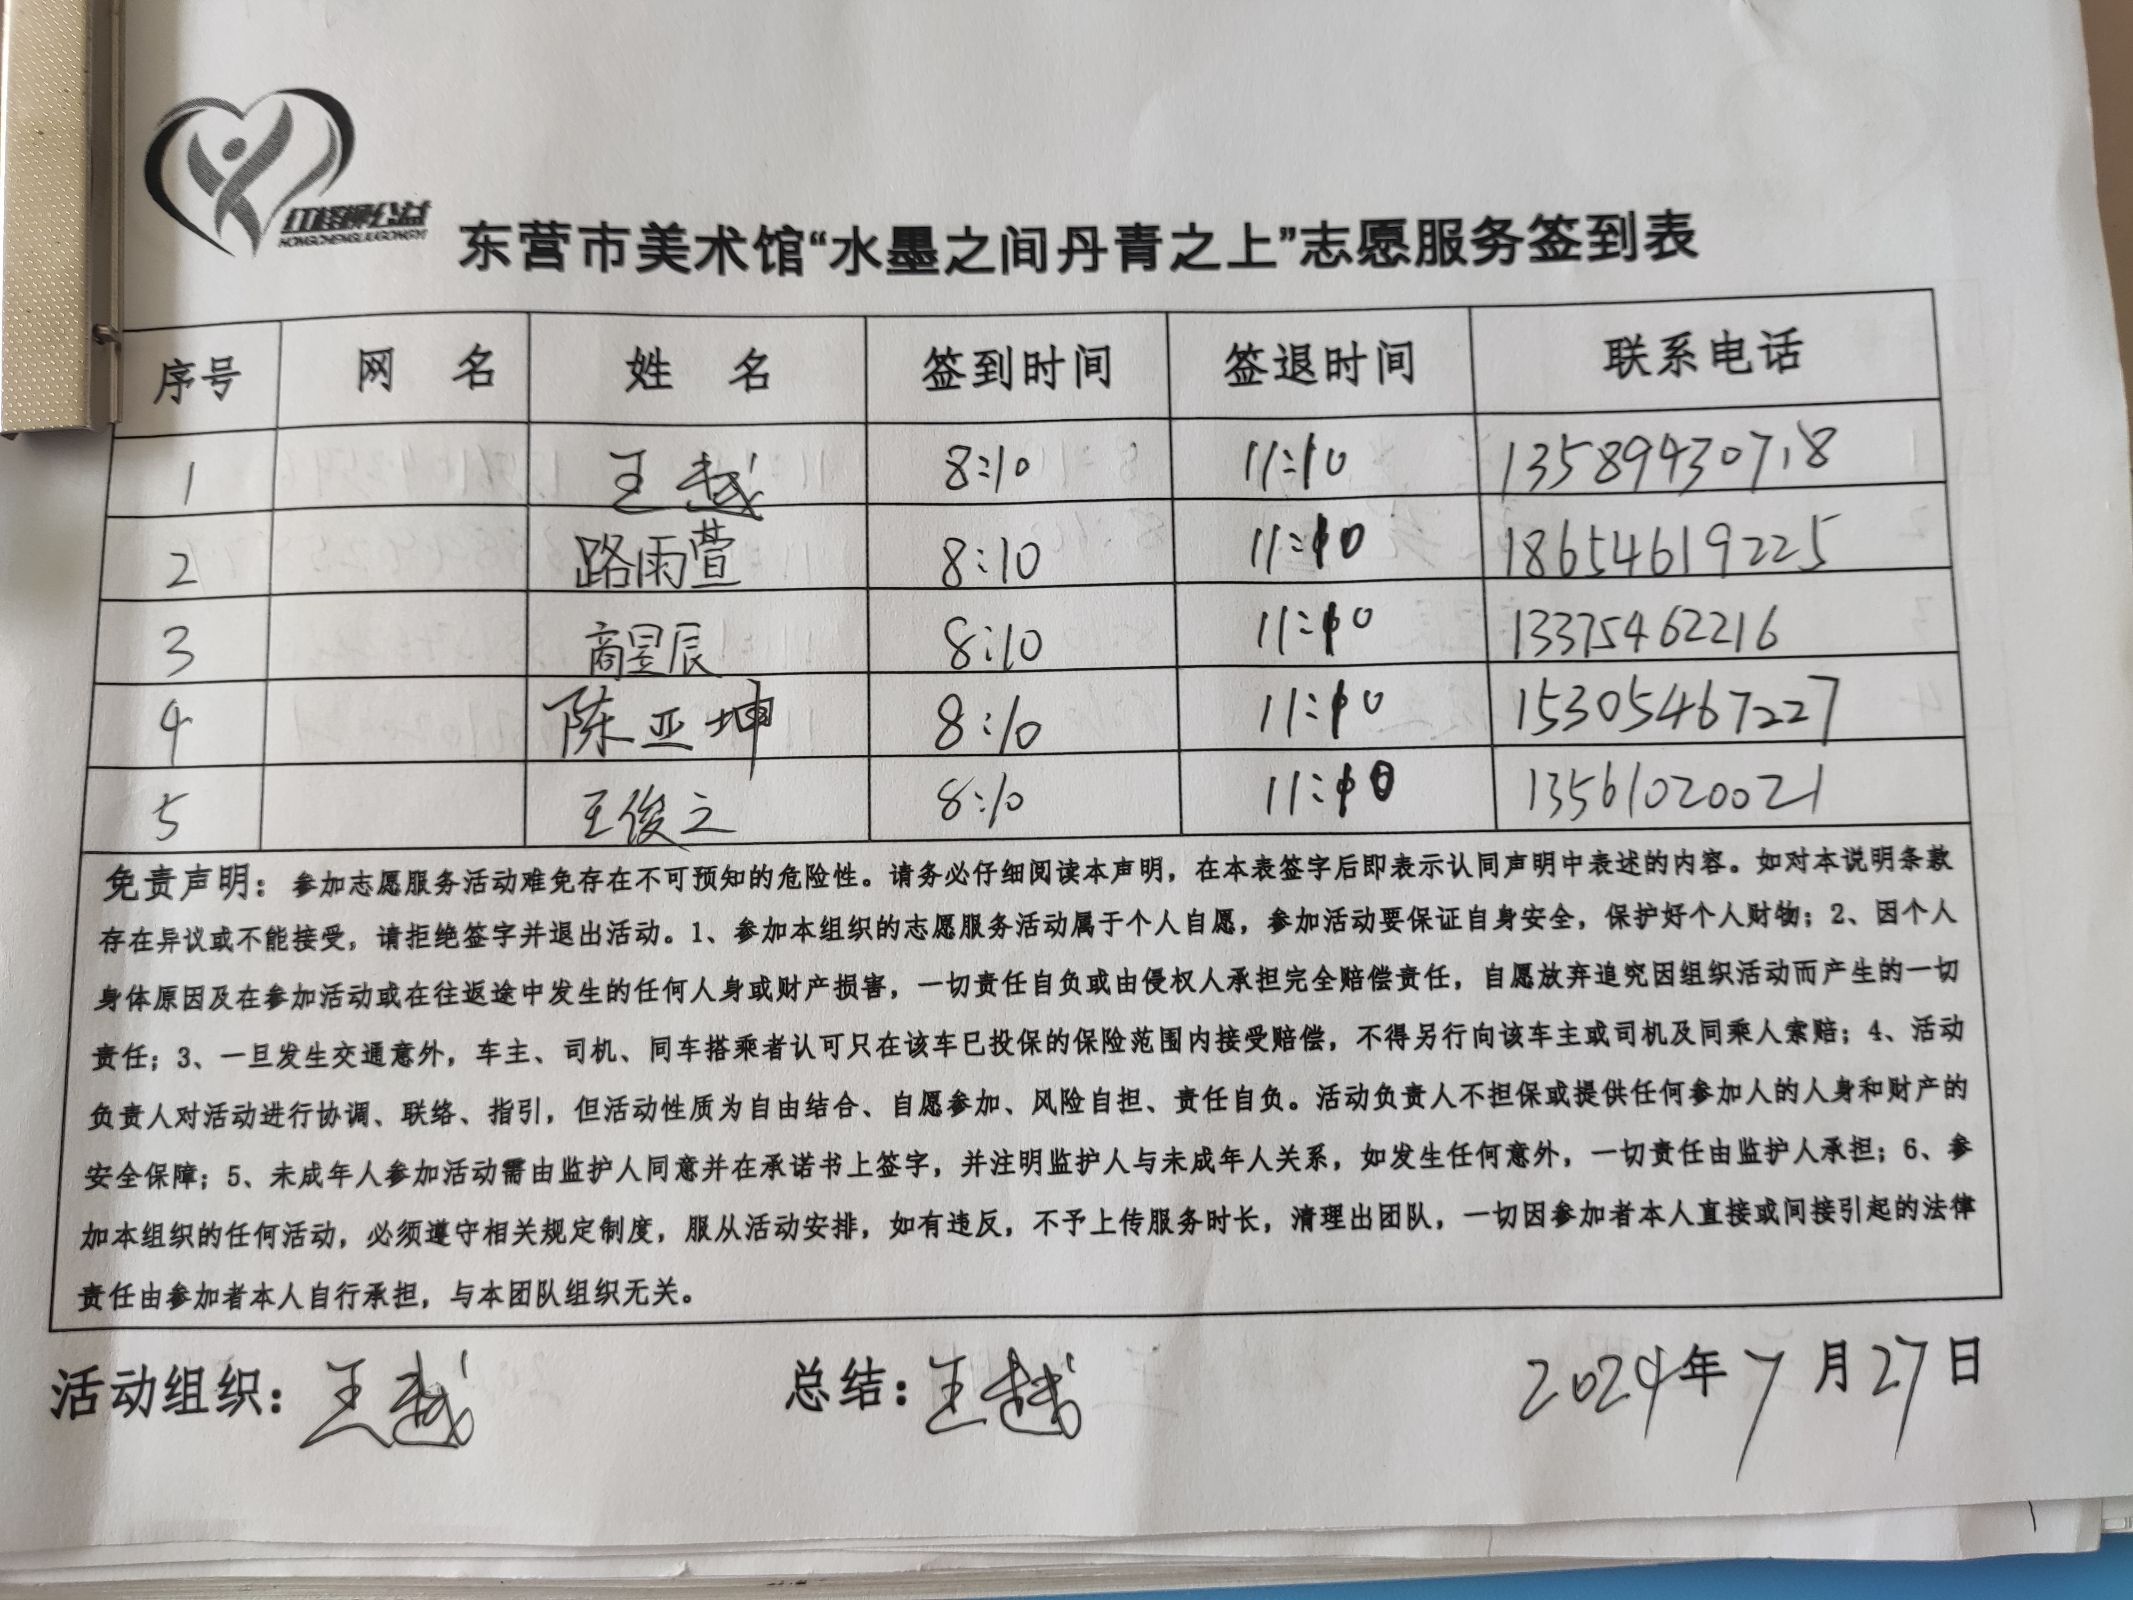 红橙柳公益
HONGCHENGLIUGONGYI
东营市美术馆“水墨之间丹青之上”志愿服务签到表
序号 网 名 姓 名 签到时间 签退时间 联系电话
1 王越 8:10 11:10 13589430718
2 路雨萱 8:10 11:10 18654619225
3 商昱辰 8:10 11:10 13375462216
4 陈亚坤 8:10 11:10 15305467227
5 王俊之 8:10 11:10 13561020021
免责声明：参加志愿服务活动难免存在不可预知的危险性。请务必仔细阅读本声明，在本表签字后即表示认同声明中表述的内容。如对本说明条款
存在异议或不能接受，请拒绝签字并退出活动。1、参加本组织的志愿服务活动属于个人自愿，参加活动要保证自身安全，保护好个人财物；2、因个人
身体原因及在参加活动或在往返途中发生的任何人身或财产损害，一切责任自负或由侵权人承担完全赔偿责任，自愿放弃追究因组织活动而产生的一切
责任；3、一旦发生交通意外，车主、司机、同车搭乘者认可只在该车已投保的保险范围内接受赔偿，不得另行向该车主或司机及同乘人索赔；4、活动
负责人对活动进行协调、联络、指引，但活动性质为自由结合、自愿参加、风险自担、责任自负。活动负责人不担保或提供任何参加人的人身和财产的
安全保障；5、未成年人参加活动需由监护人同意并在承诺书上签字，并注明监护人与未成年人关系，如发生任何意外，一切责任由监护人承担；6、参
加本组织的任何活动，必须遵守相关规定制度，服从活动安排，如有违反，不予上传服务时长，清理出团队，一切因参加者本人直接或间接引起的法律
责任由参加者本人自行承担，与本团队组织无关。
活动组织：王越 总结：王越 2024年7月27日